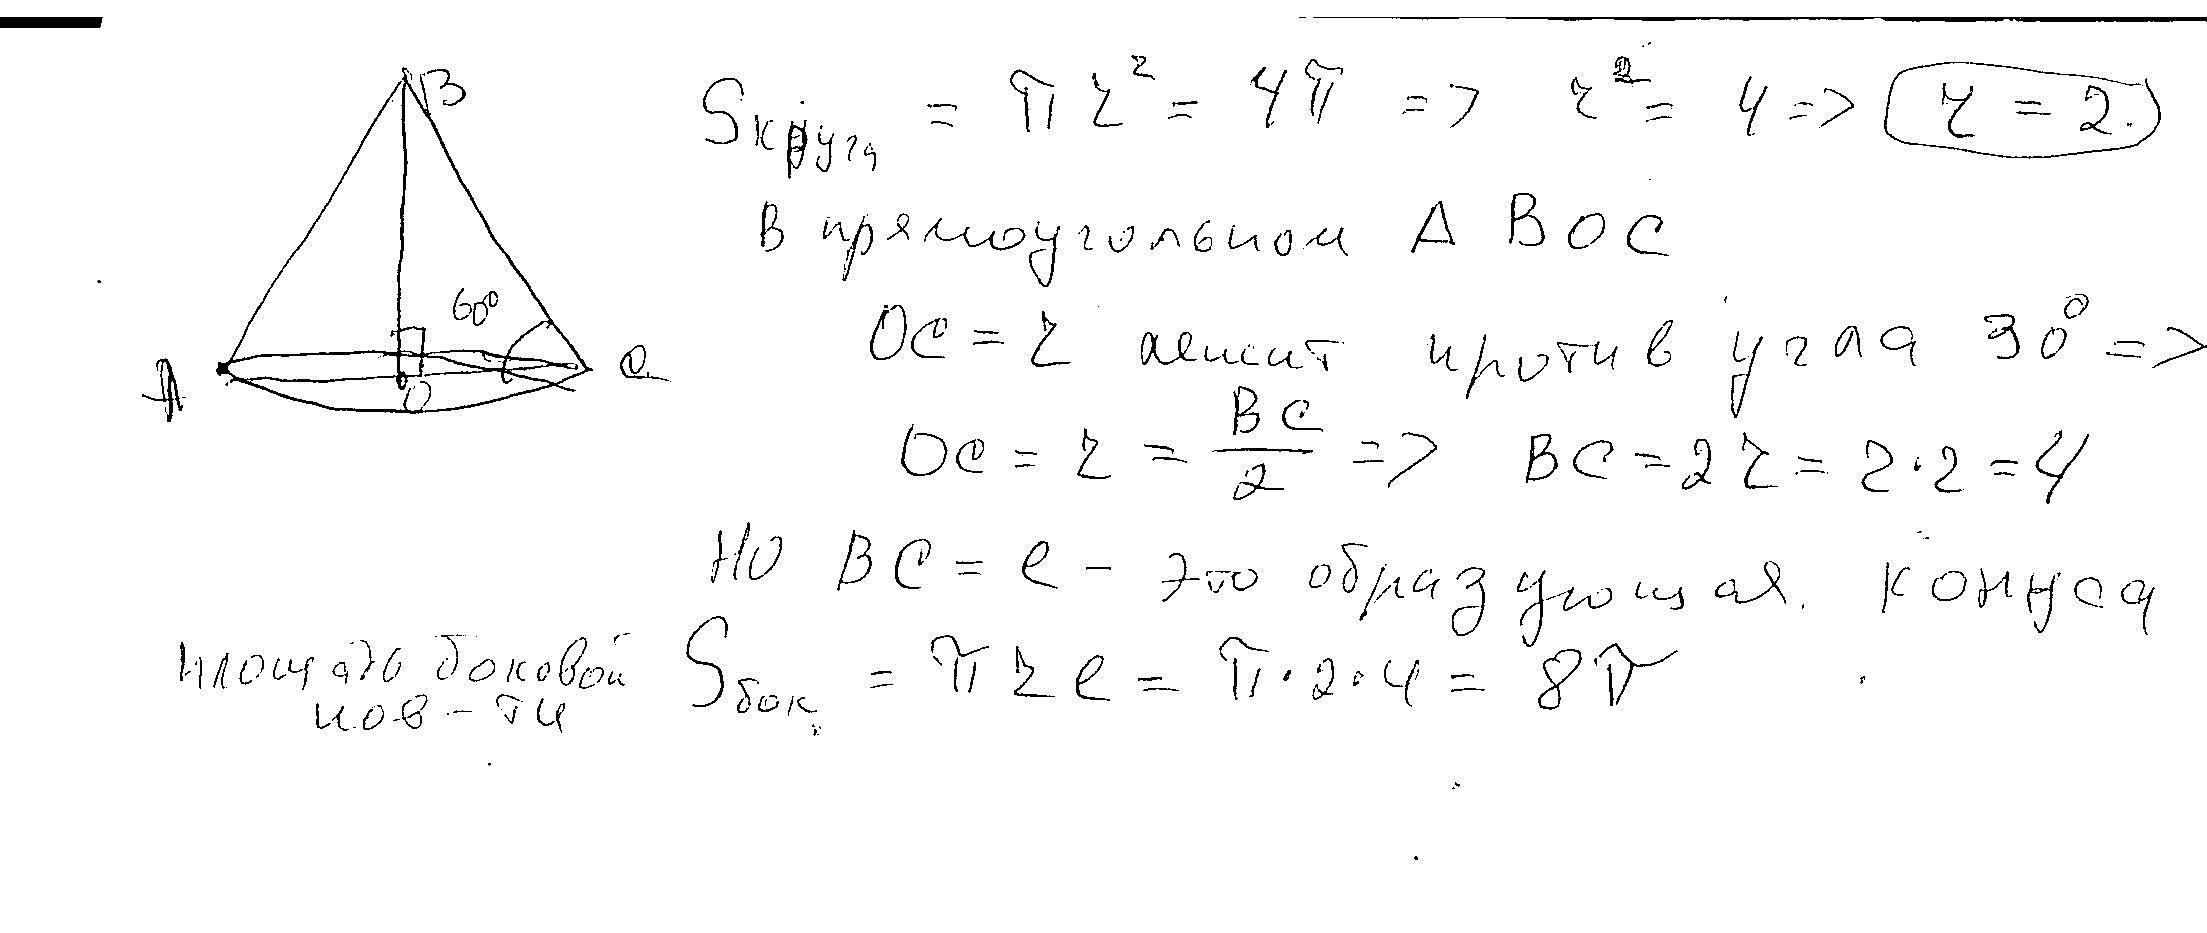 B
Sкруга = πr² = 4π => r² = 4 => r = 2.
В прямоугольном Δ BOC
60°
OC = r лежит против угла 30° =>
A
O
C
OC = r = BC/2 => BC = 2r = 2·2 = 4
Но BC = l - это образующая. конуса
площадь боковой Sбок. = πrl = π·2·4 = 8π
пов-ти